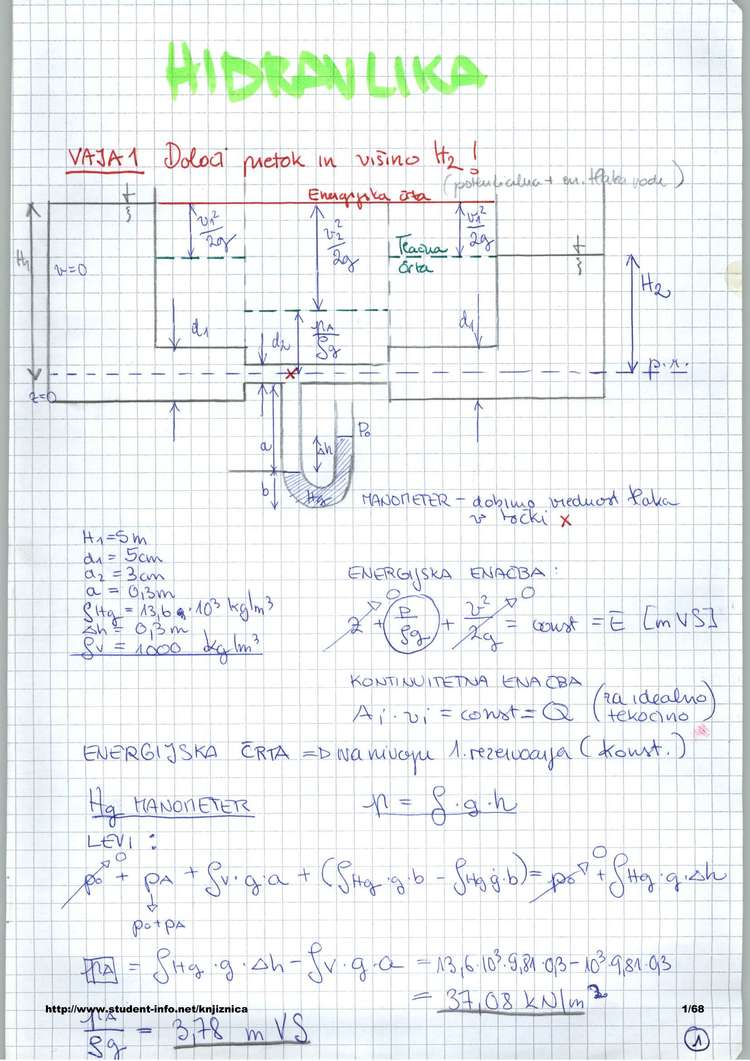 HIDRAVLIKA
VAJA 1 Določi pretok in višino H₂!
(potencialna + en. tlaka vode)
Energijska črta
v₁²/2g
v₂²/2g
v₁²/2g
Tlačna
črta
H₁
v=0
H₂
d₁
d₂
pA/ρg
d₁
p.r.
z=0
x
a
Δh
P₀
b
Hg
MANOMETER – dobimo vrednost tlaka
v točki x
H₁=5m
d₁ = 5cm
d₂ = 3cm
a = 0,3m
ρHg = 13,6 · 10³ kg/m³
Δh = 0,3m
ρv = 1000 kg/m³
ENERGIJSKA ENAČBA:
z→0 + p/ρg + v²/2g→0 = const = E [mVS]
KONTINUITETNA ENAČBA
Ai · vi = const = Q (za idealno tekočino)
ENERGIJSKA ČRTA => na nivoju 1. rezervoarja (konst.)
Hg MANOMETER
p = ρ · g · h
LEVI:
p₀→0 + pA + ρv·g·a + (ρHg·g·b – ρHg·g·b) = p₀→0 + ρHg·g·Δh
↓
p₀+pA
pA = ρHg · g · Δh – ρv · g · a = 13,6·10³·9,81·0,3 – 10³·9,81·0,3
= 37,08 kN/m²
http://www.student-info.net/knjiznica
1/68
pA/ρg = 3,78 m VS
1